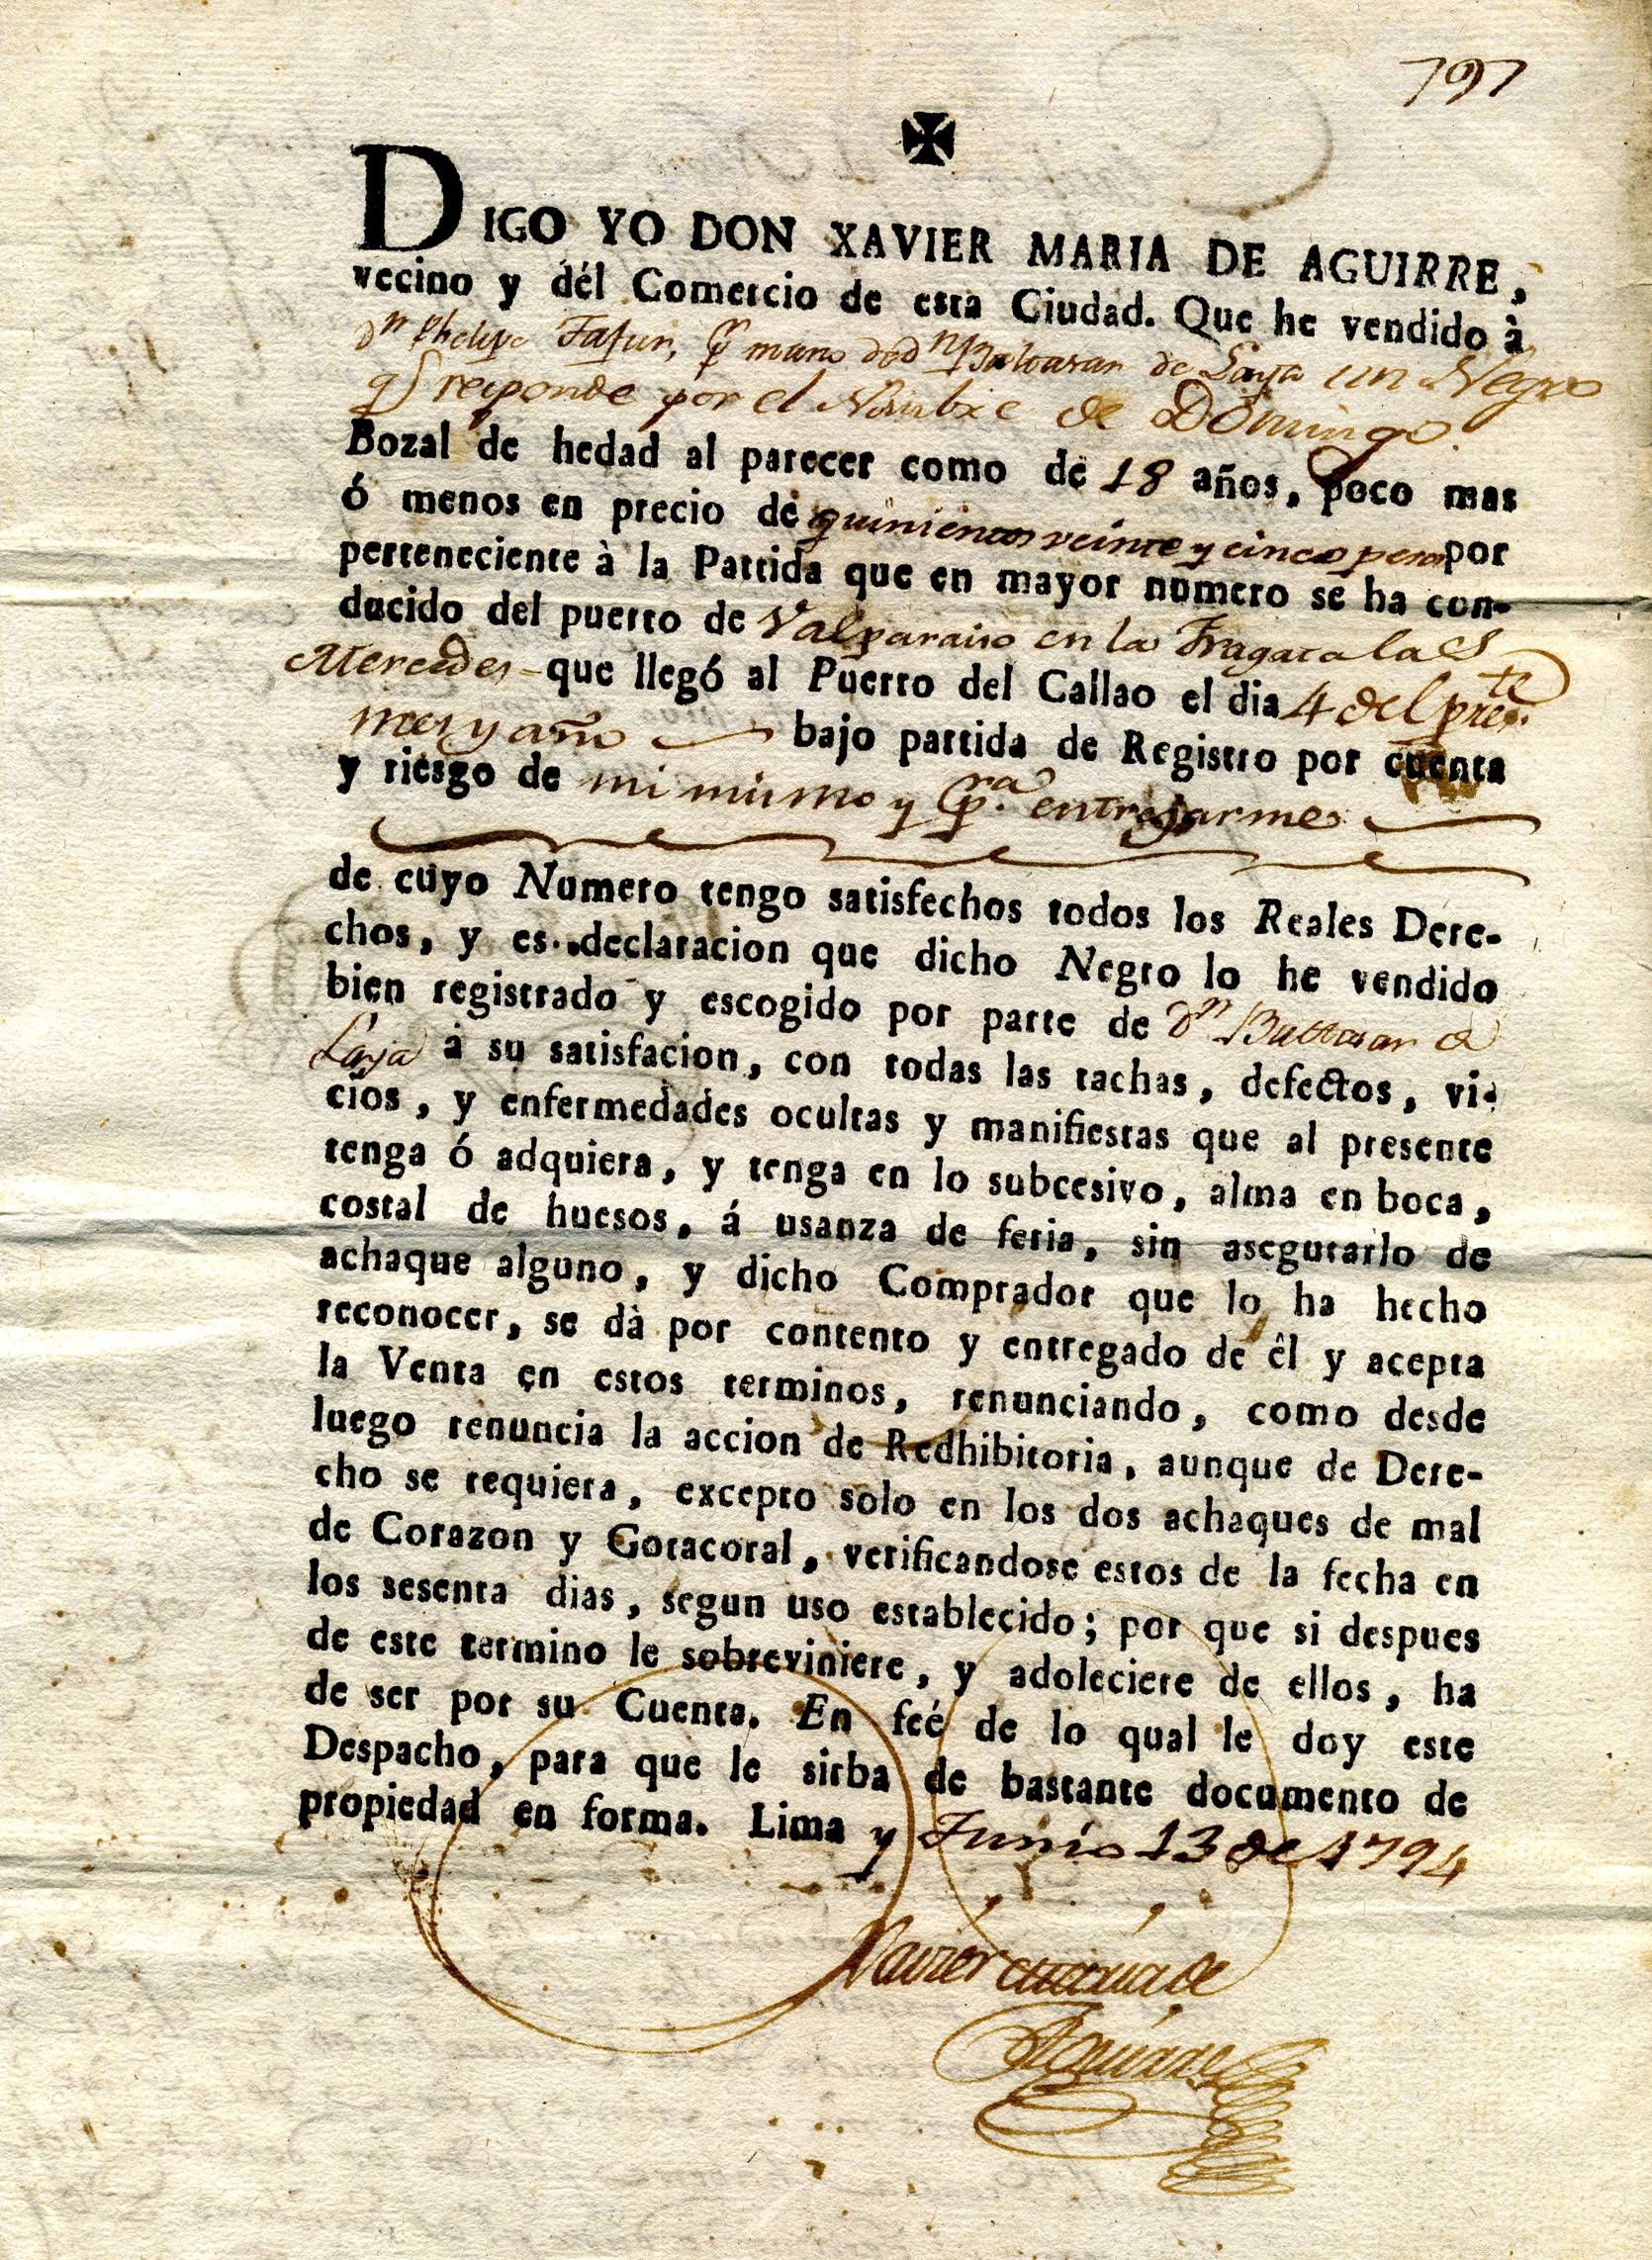 797
✠
DIGO YO DON XAVIER MARIA DE AGUIRRE,
vecino y dél Comercio de esta Ciudad. Que he vendido à
dn Phelipe Jafur, pr mano de dn Baltasar de Laya un Negro
q responde por el Nombre de Domingo.
Bozal de hedad al parecer como de 18 años, poco mas
ó menos en precio de quinientos veinte y cinco pesos por
perteneciente à la Partida que en mayor numero se ha con-
ducido del puerto de Valparaiso en la Fragata las
Mercedes - que llegó al Puerto del Callao el dia 4 del prete
mes y año bajo partida de Registro por cuenta
y riesgo de mi mismo y pra entregarme
de cuyo Numero tengo satisfechos todos los Reales Dere-
chos, y es declaracion que dicho Negro lo he vendido
bien registrado y escogido por parte de dn Baltasar de
Laya à su satisfacion, con todas las tachas, defectos, vi-
cios, y enfermedades ocultas y manifiestas que al presente
tenga ó adquiera, y tenga en lo subcesivo, alma en boca,
costal de huesos, á usanza de feria, sin asegurarlo de
achaque alguno, y dicho Comprador que lo ha hecho
reconocer, se dà por contento y entregado de êl y acepta
la Venta en estos terminos, renunciando, como desde
luego renuncia la accion de Redhibitoria, aunque de Dere-
cho se requiera, excepto solo en los dos achaques de mal
de Corazon y Gotacoral, verificandose estos de la fecha en
los sesenta dias, segun uso establecido; por que si despues
de este termino le sobreviniere, y adoleciere de ellos, ha
de ser por su Cuenta. En feé de lo qual le doy este
Despacho, para que le sirba de bastante documento de
propiedad en forma. Lima y Junio 13 de 1794
Xavier Maria de
Aguirre